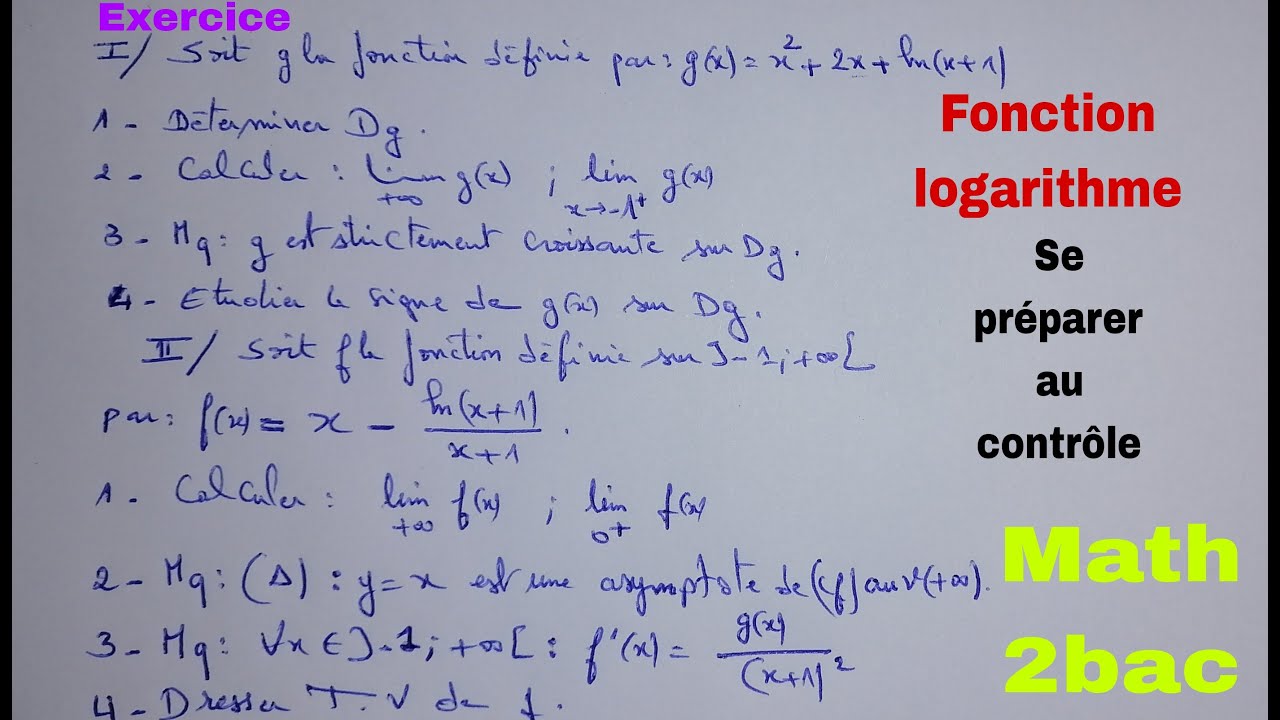 Exercice
I/ Soit g la fonction définie par : g(x) = x² + 2x + ln(x+1)
1 - Déterminer Dg.
2 - Calculer : lim g(x) ; lim g(x)
+∞ x→-1⁺
3 - Mq : g est strictement croissante sur Dg.
4 - Etudier le signe de g(x) sur Dg.
II/ Soit f la fonction définie sur ]-1; +∞[
par : f(x) = x - ln(x+1) / x+1 .
1 - Calculer : lim f(x) ; lim f(x)
+∞ 0⁺
2 - Mq : (Δ) : y = x est une asymptote de (Cf) au v(+∞).
3 - Mq : ∀x ∈ ]-1; +∞[ : f'(x) = g(x) / (x+1)²
4 - Dresser T.V de f.
Fonction
logarithme
Se
préparer
au
contrôle
Math
2bac